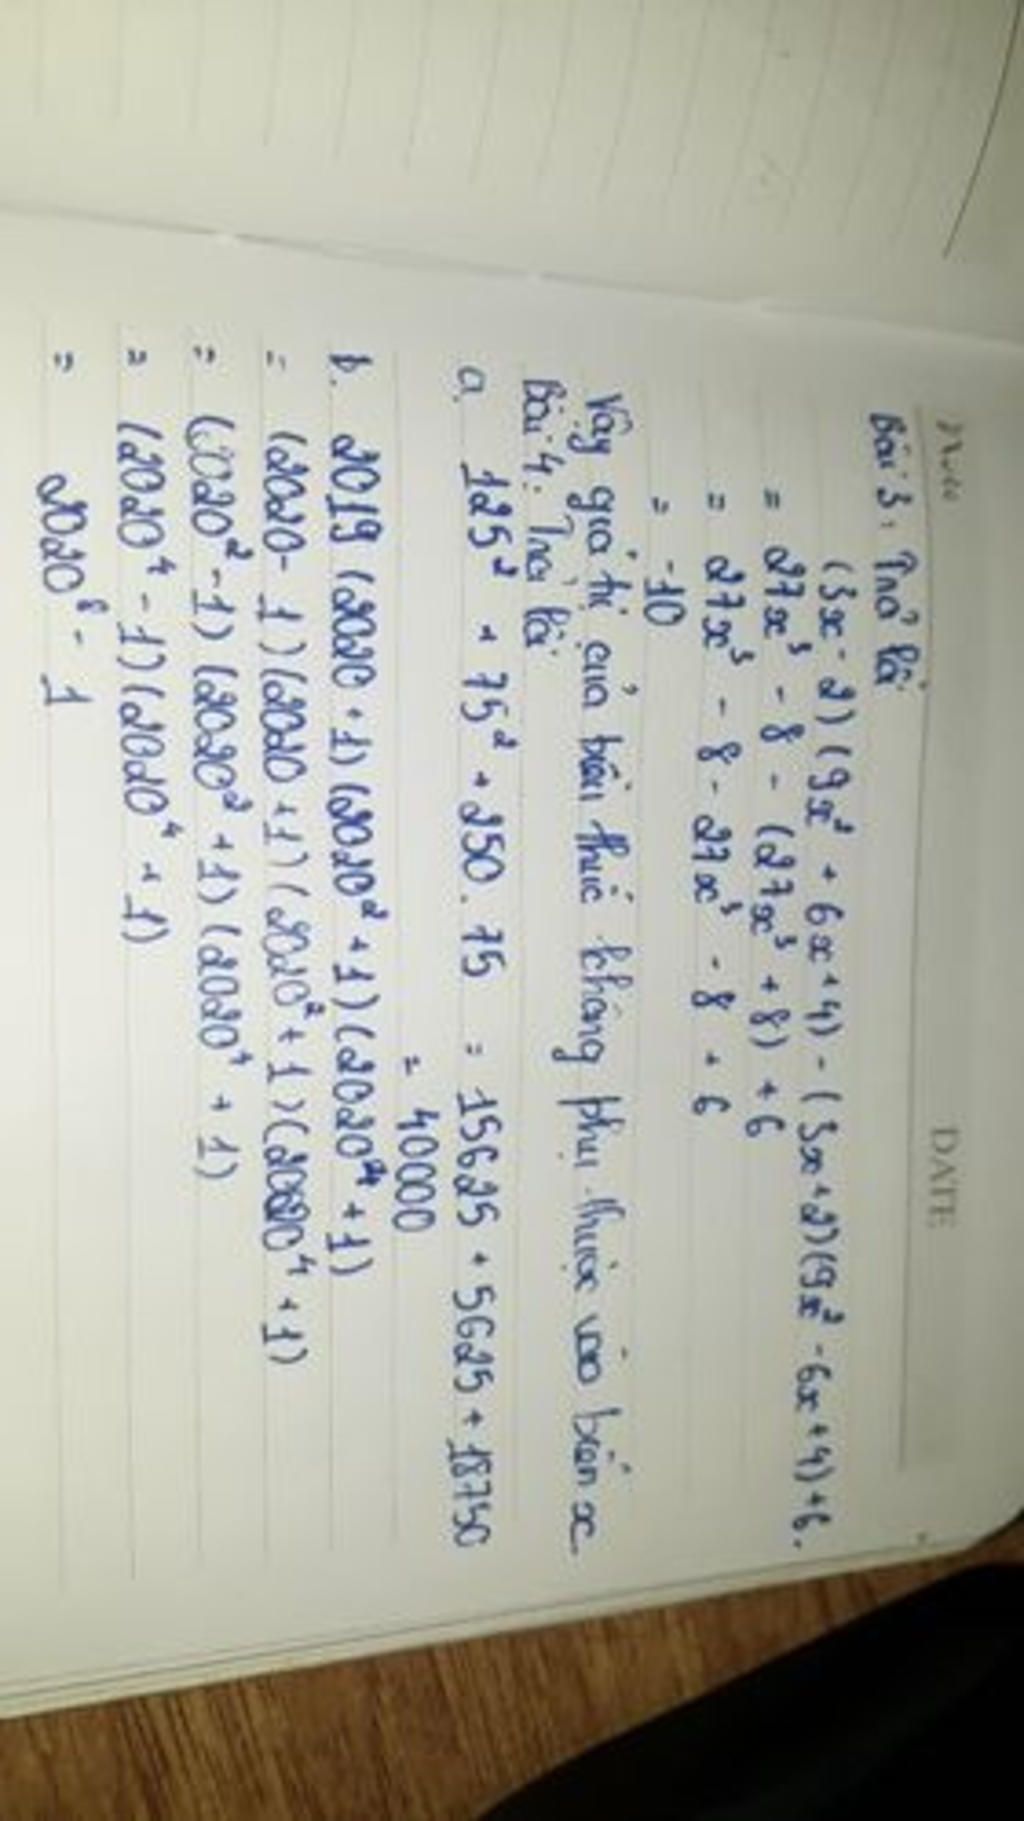 DATE
Bài 3: Trả lời
(3x - 2) (9x² + 6x + 4) - (3x + 2) (9x² - 6x + 4) + 6.
= 27x³ - 8 - (27x³ + 8) + 6
= 27x³ - 8 - 27x³ - 8 + 6
= -10
Vậy giá trị của biểu thức không phụ thuộc vào biến x.
Bài 4: Trả lời
a. 125² + 75² + 250 . 75 = 15625 + 5625 + 18750
= 40000
b. 2019 (2020 + 1) (2020² + 1) (2020⁴ + 1)
= (2020 - 1) (2020 + 1) (2020² + 1) (2020⁴ + 1)
= (2020² - 1) (2020² + 1) (2020⁴ + 1)
= (2020⁴ - 1) (2020⁴ + 1)
= 2020⁸ - 1